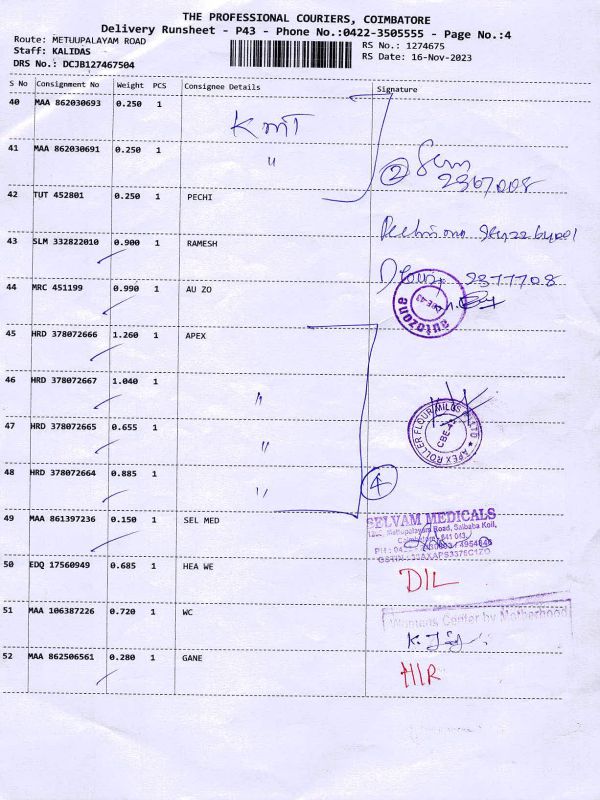 THE PROFESSIONAL COURIERS, COIMBATORE
Delivery Runsheet - P43 - Phone No.:0422-3505555 - Page No.:4
Route: METUUPALAYAM ROAD
Staff: KALIDAS
DRS No.: DCJB127467504
RS No.: 1274675
RS Date: 16-Nov-2023
S No Consignment No Weight PCS Consignee Details Signature
40 MAA 862030693 0.250 1 KMT
41 MAA 862030691 0.250 1 "
2
2367008
42 TUT 452801 0.250 1 PECHI
43 SLM 332822010 0.900 1 RAMESH
2377708
44 MRC 451199 0.990 1 AU ZO
autozone
CBE-43
45 HRD 378072666 1.260 1 APEX
46 HRD 378072667 1.040 1 "
47 HRD 378072665 0.655 1 "
APEX ROLLER FLOUR MILLS
48 HRD 378072664 0.885 1 "
4
49 MAA 861397236 0.150 1 SEL MED
SELVAM MEDICALS
Mettupalayam Road, Saibaba Koil,
Coimbatore - 641 043.
50 EDQ 17560949 0.685 1 HEA WE D/L
51 MAA 106387226 0.720 1 WC
Womens Center by Motherhood
52 MAA 862506561 0.280 1 GANE